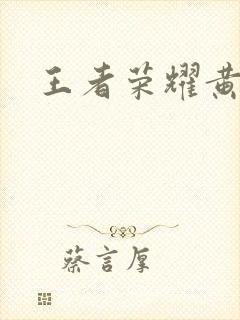 王者荣耀黄
蔡言厚